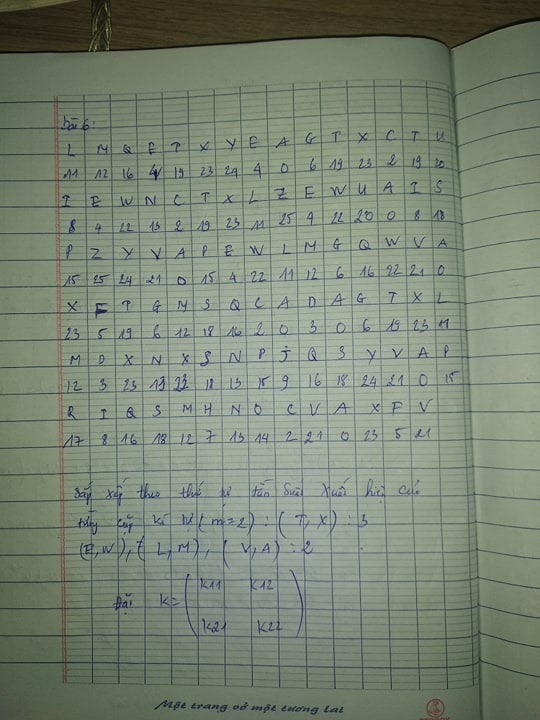 Bài 6:
L M Q E T X Y E A G T X C T U
11 12 16 4 19 23 24 4 0 6 19 23 2 19 20
I E W N C T X L Z E W U A I S
8 4 22 13 2 19 23 11 25 4 22 20 0 8 18
P Z Y V A P E W L M G Q W V A
15 25 24 21 0 15 4 22 11 12 6 16 22 21 0
X F T G M S Q C A D A G T X L
23 5 19 6 12 18 16 2 0 3 0 6 19 23 11
M D X N X S N P J Q S Y V A P
12 3 23 13 23 18 13 15 9 16 18 24 21 0 15
R I Q S M H N O C V A X F V
17 8 16 18 12 7 13 14 2 21 0 23 5 21
Sắp xếp theo thứ tự tần suất xuất hiện của
từng cặp kí tự (m=2) : (T, X) : 3
(E,W), (L,M), (V,A) : 2
Đặt K = ( K11 K12
K21 K22 )
Một trang vở một tương lai